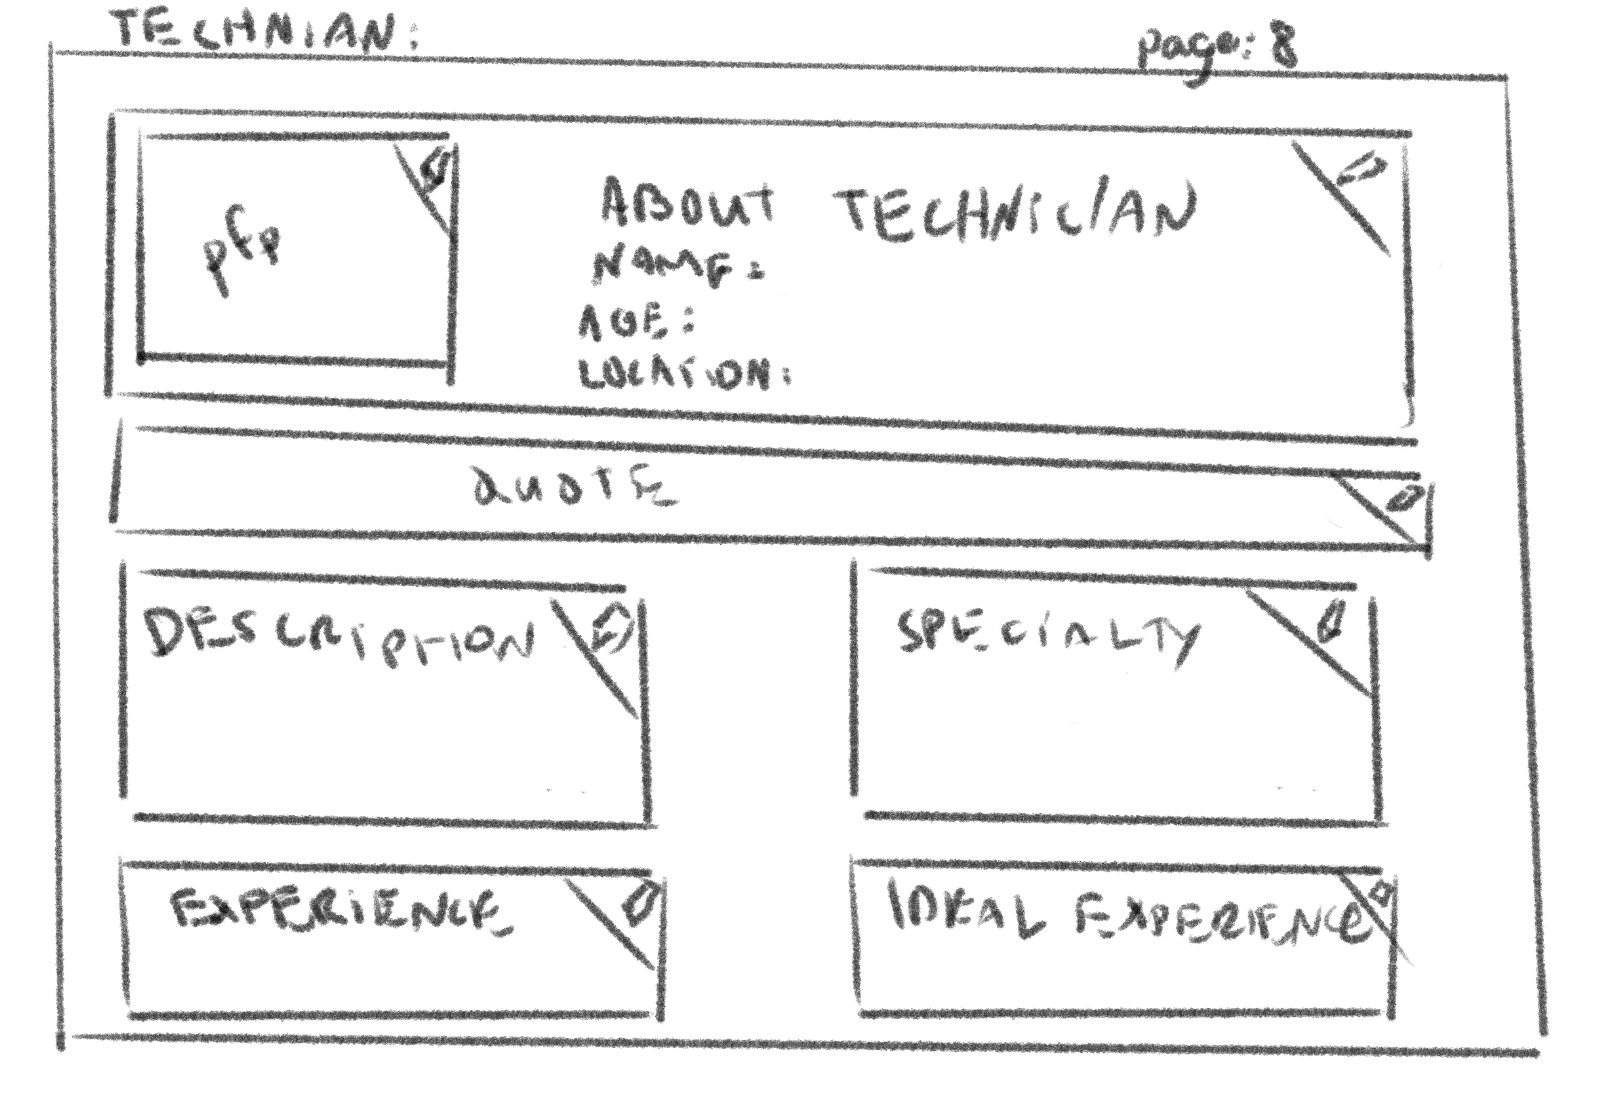 TECHNIAN:
page: 8
pfp
ABOUT TECHNICIAN
NAME:
AGE:
LOCATION:
QUOTE
DESCRIPTION
SPECIALTY
EXPERIENCE
IDEAL EXPERIENCE